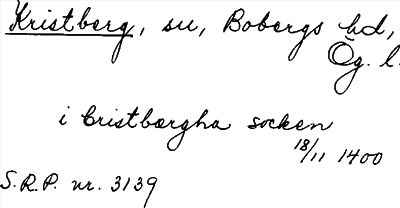 Kristberg, sn, Bobergs hd,
Ög. l.
i Cristbærgha socken
18/11 1400
S.R.P. nr. 3139